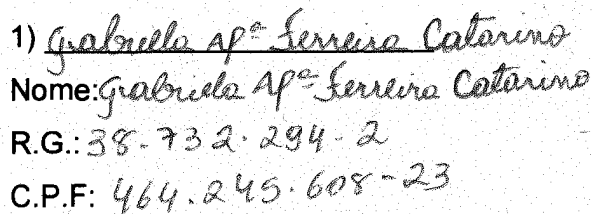 1) Grabriella Apª Ferreira Catarino
Nome: Grabriela Apª Ferreira Catarino
R.G.: 38.732.294-2
C.P.F: 464.245.608-23